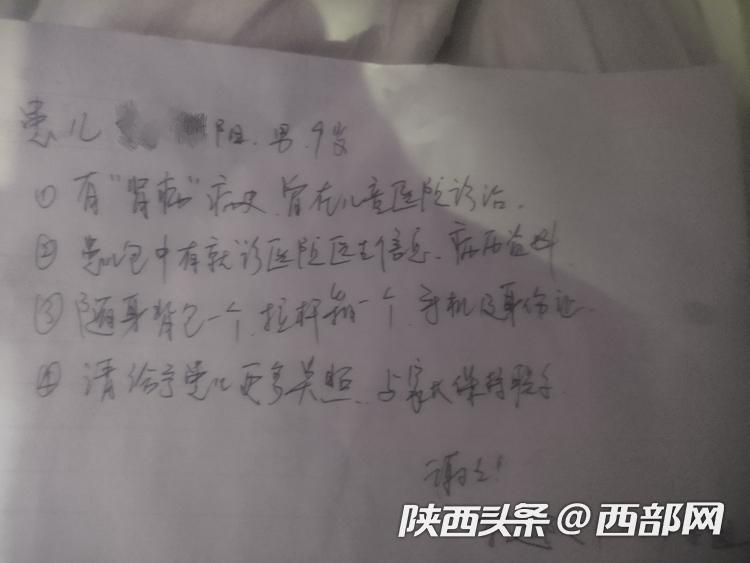 患儿 阳、男、9岁
① 有“肾病”病史、曾在儿童医院诊治.
② 患儿包中有就诊医院医生信息、病历资料.
③ 随身背包一个、拉杆箱一个、手机及身份证.
④ 请给予患儿更多关照、与家长保持联系.
谢谢!
陕西头条@西部网